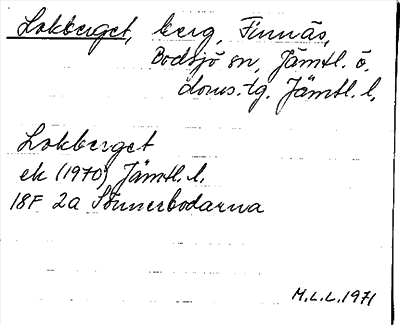 Lokberget, berg, Finnäs,
Bodsjö sn, Jämtl. ö.
doms.-tg. Jämtl. l.
Lokberget
ek (1970) Jämtl. l.
18F 2a Sönnerbodarna
M.L.L. 1971